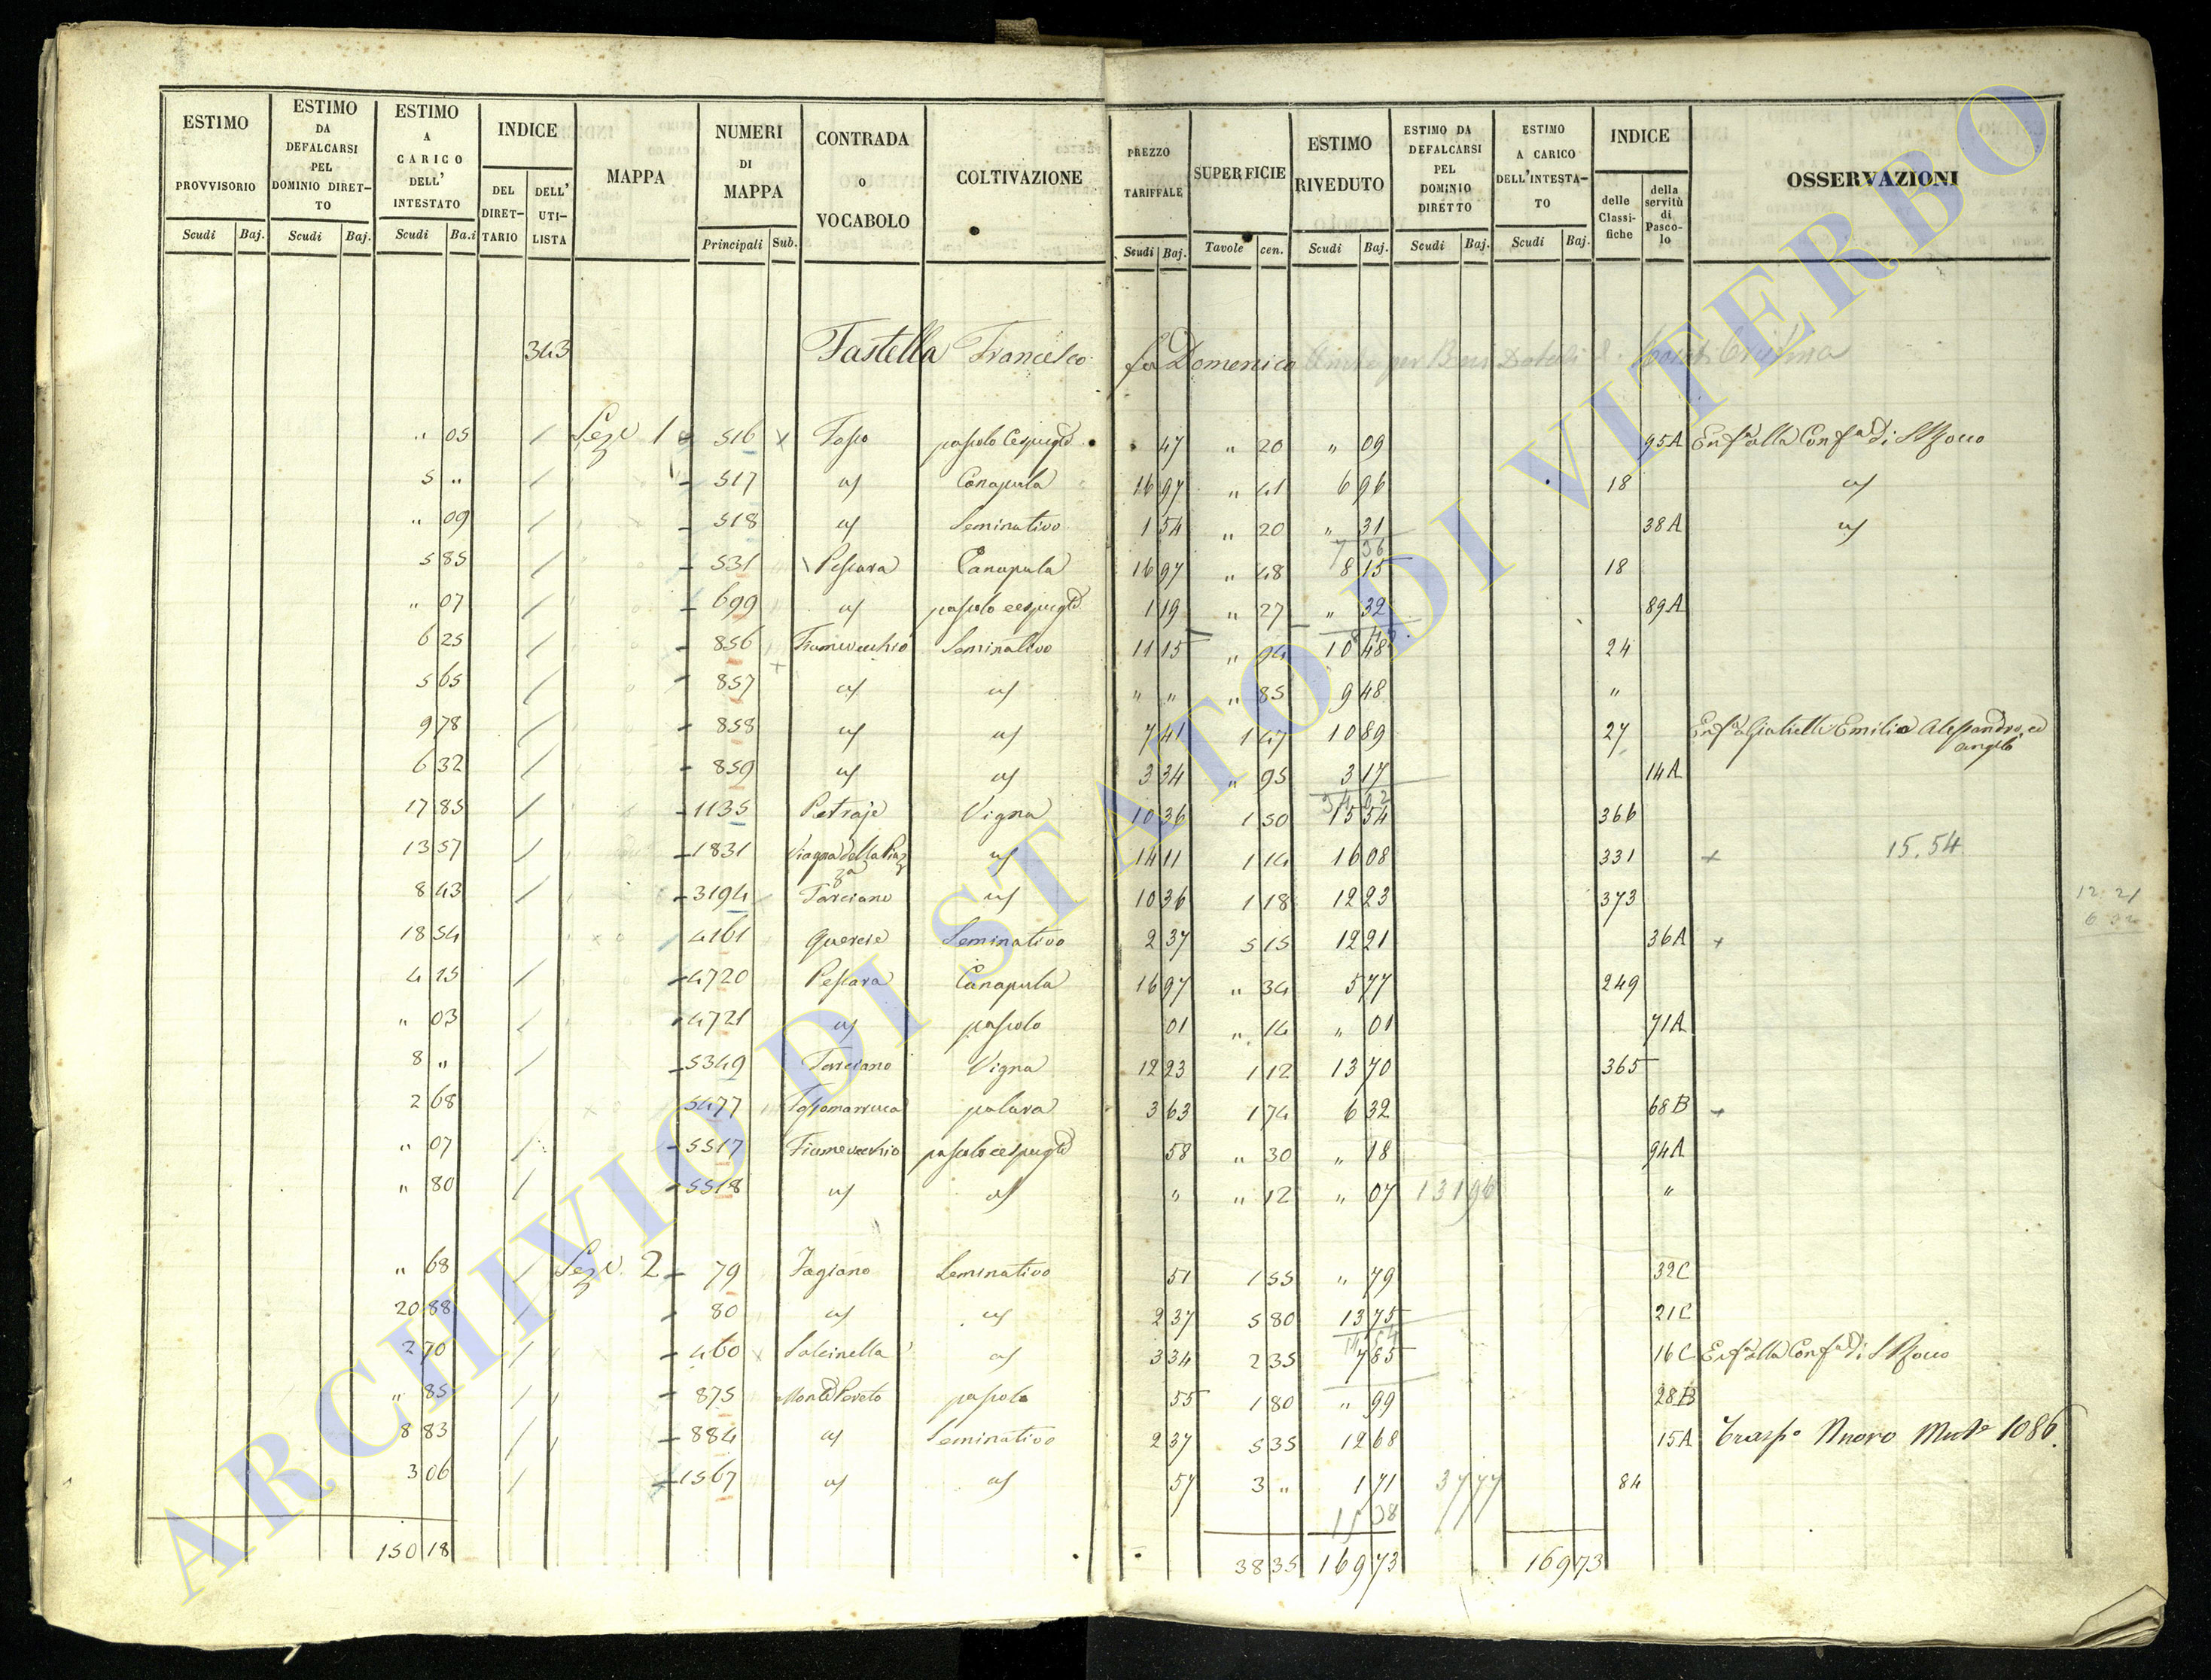 ESTIMO PROVVISORIO | ESTIMO DA DEFALCARSI PEL DOMINIO DIRETTO | ESTIMO A CARICO DELL' INTESTATO | INDICE | MAPPA | NUMERI DI MAPPA | CONTRADA O VOCABOLO | COLTIVAZIONE | PREZZO TARIFFALE | SUPERFICIE | ESTIMO RIVEDUTO | ESTIMO DA DEFALCARSI PEL DOMINIO DIRETTO | ESTIMO A CARICO DELL'INTESTATO | INDICE | OSSERVAZIONI
DEL DIRETTARIO | DELL' UTILISTA | delle Classifiche | della servitù di Pascolo
Scudi | Baj. | Scudi | Baj. | Scudi | Ba.i | Principali | Sub. | Scudi | Baj. | Tavole | cen. | Scudi | Baj. | Scudi | Baj. | Scudi | Baj.
343 Tastella Francesco fu Domenico
" 05 / Sez.e 1 516 x pascolo cespugto 47 " 20 " 09 95A Enfa alla Confa di S Rocco
5 " / 517 us Canapula 16 97 " 41 6 96 18 us
" 09 / 518 us Seminativo 1 54 " 20 " 31 38A us
7 36
5 85 / 531 Pescara Canapula 16 97 " 48 8 15 18
" 07 / 699 us pascolo cespugto 1 19 " 27 " 32 89A
6 25 / 856 Fiumevecchio Seminativo 11 15 " 94 10 48 24
5 65 / 857 us us " " " 85 9 48 "
9 78 / 858 us us 7 41 1 47 10 89 27 Emilio Alessandro, ed Angelo
6 32 / 859 us us 3 34 " 95 3 17 14A
17 85 / 1135 Petraje Vigna 10 36 1 50 15 54 366
13 57 / 1831 Viagna della Piazza us 14 11 1 14 16 08 331 + 15.54
8 43 / 3194 Torciano us 10 36 1 18 12 23 373
12 21
6 32
18 54 4161 Quercie Seminativo 2 37 5 15 12 21 36A +
4 15 / 4720 Pescara Canapula 16 97 " 34 5 77 249
" 03 / 4721 us pascolo 01 " 14 " 01 71A
8 " / 5349 Torciano Vigna 12 23 1 12 13 70 365
2 68 5477 palara 3 63 1 74 6 32 68B +
" 07 / 5517 Fiumevecchio pascolo cespugto 58 " 30 " 18 94A
" 80 / 5518 us us " " 12 " 07 131 96 "
" 68 / Sez.e 2 79 Fagiano Seminativo 51 1 55 " 79 32C
20 88 / 80 us us 2 37 5 80 13 75 21C
14 54
2 70 / 460 x Salcinella us 3 34 2 35 7 85 16C Enfa alla Confa di S Rocco
" 85 / 875 Monte Poreto pascolo 55 1 80 " 99 28B
8 83 / 884 us Seminativo 2 37 5 35 12 68 15A Traspo Nuovo Mute 1086
3 06 / 1567 us us 57 3 " 1 71 37 77 84
15 38
150 18 38 35 169 73 169 73
ARCHIVIO DI STATO DI VITERBO